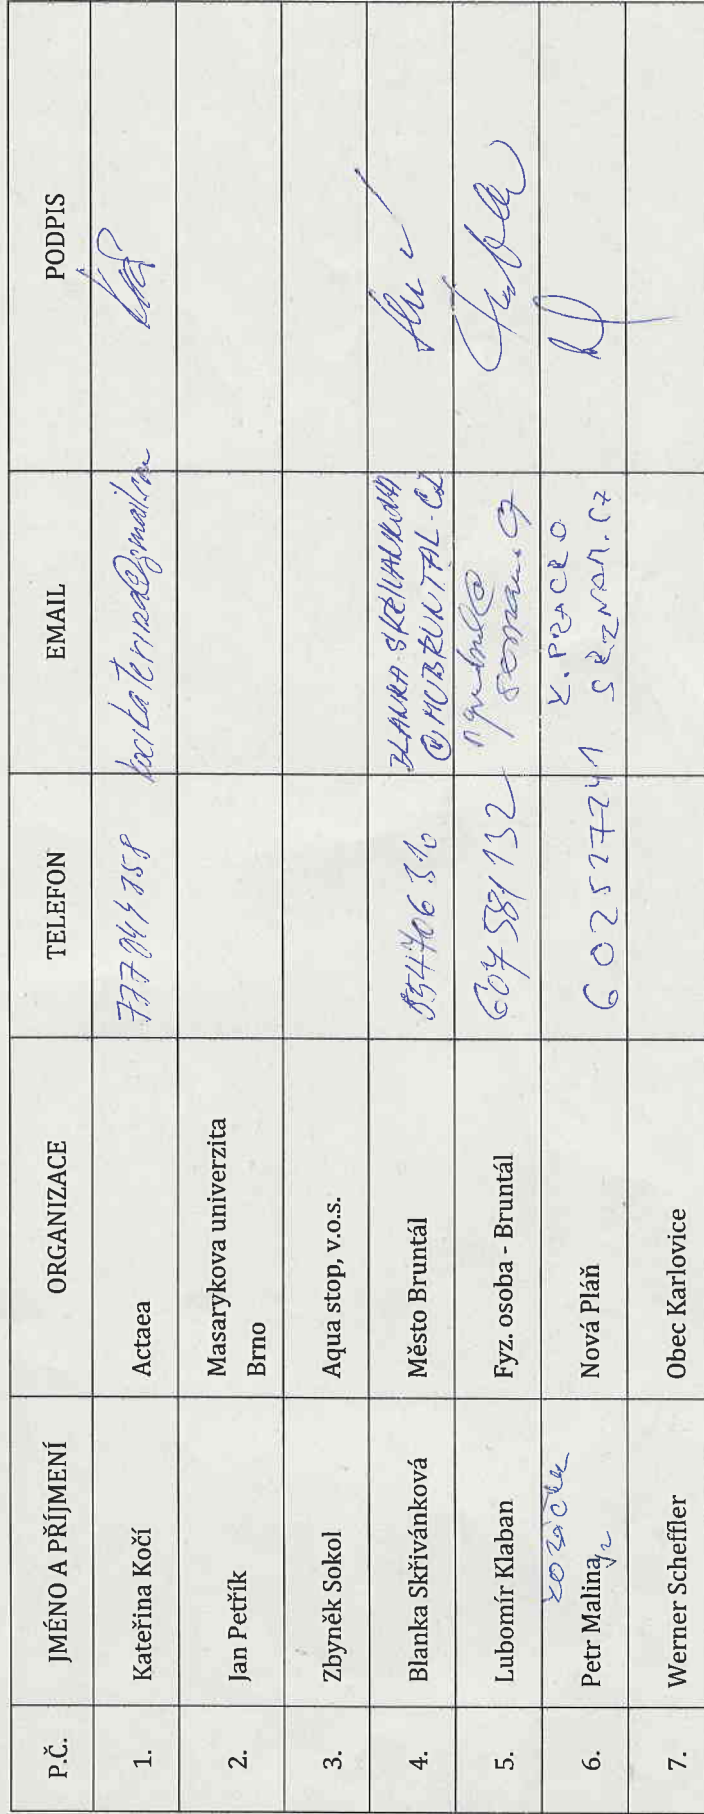 P.Č. JMÉNO A PŘÍJMENÍ ORGANIZACE TELEFON EMAIL PODPIS
1. Kateřina Kočí Actaea
2. Jan Petřík Masarykova univerzita
Brno
3. Zbyněk Sokol Aqua stop, v.o.s.
4. Blanka Skřivánková Město Bruntál 554706310 BLANKA.SKŘIVÁNKOVÁ
@MUBRUNTAL.CZ
5. Lubomír Klaban Fyz. osoba - Bruntál 604581132
6. Petr Malina Nová Pláň 602527241
SEZNAM.CZ
7. Werner Scheffler Obec Karlovice